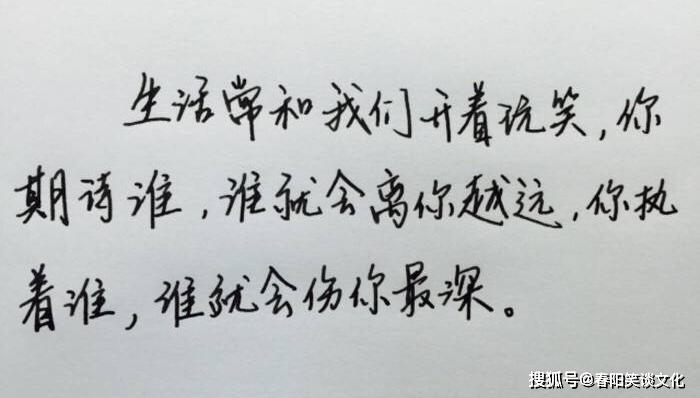 生活常和我们开着玩笑,你
期待谁,谁就会离你越远,你执
着谁,谁就会伤你最深。
搜狐号@春阳笑谈文化